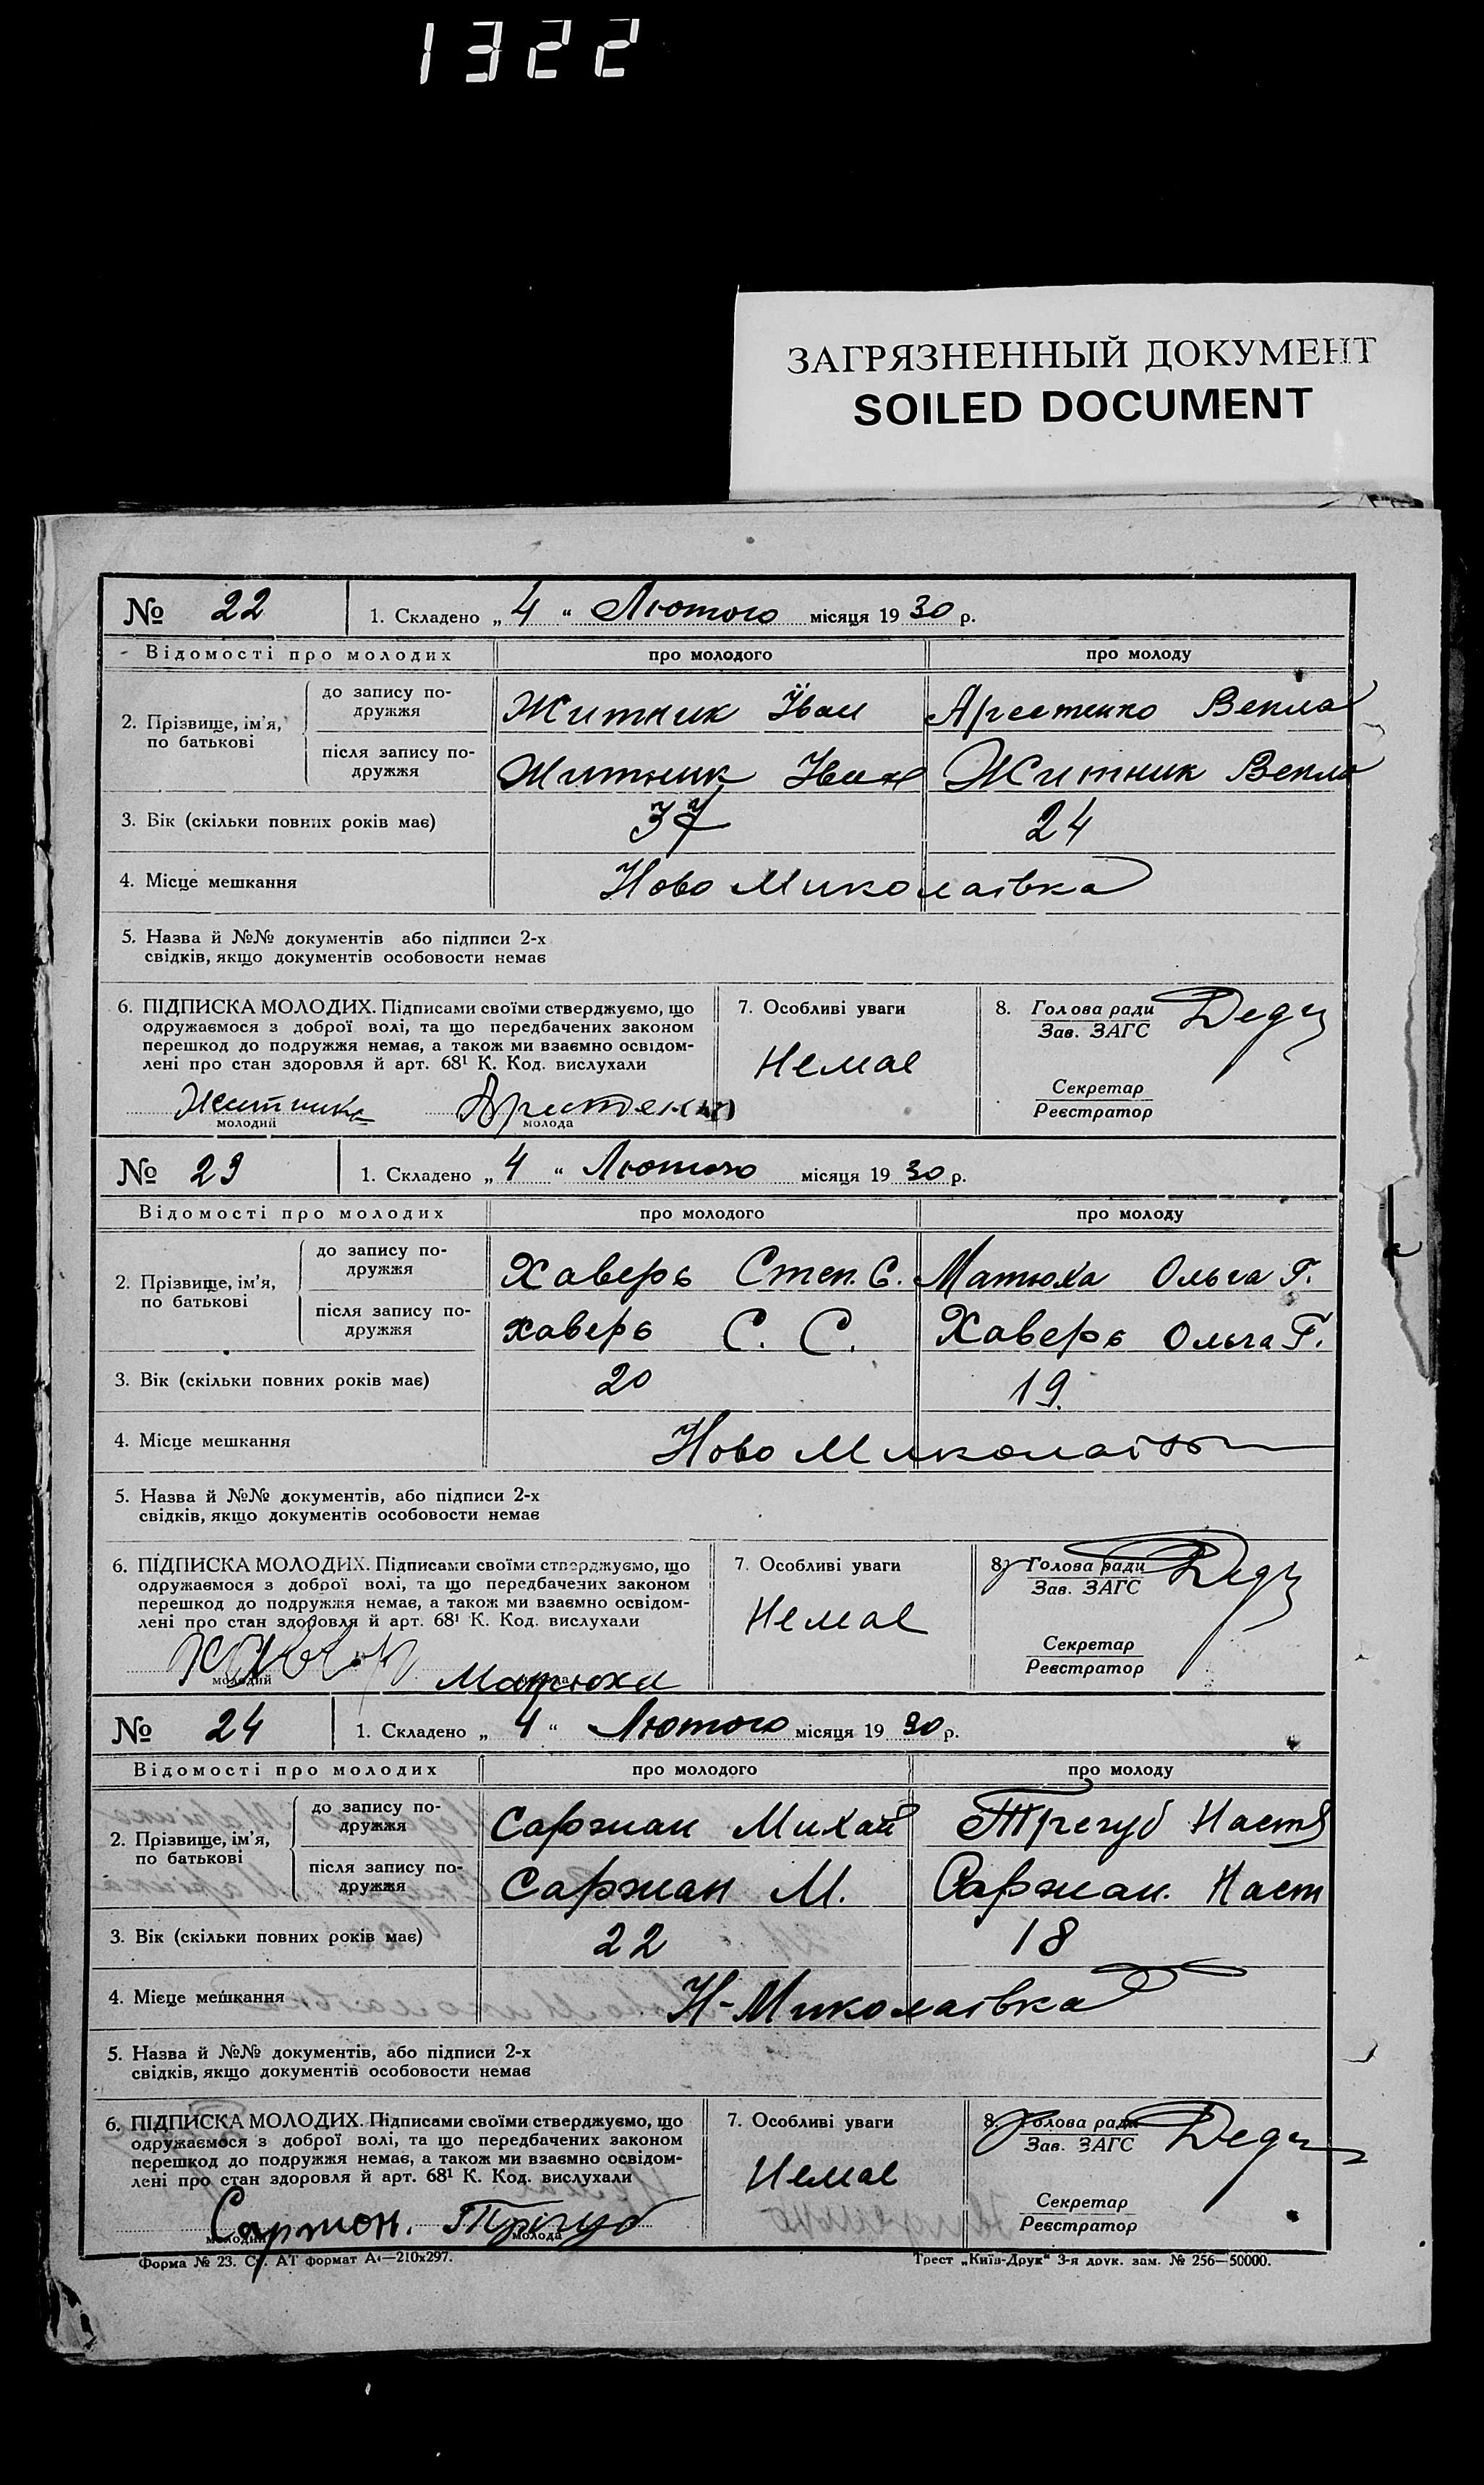 1322
ЗАГРЯЗНЕННЫЙ ДОКУМЕНТ
SOILED DOCUMENT
№ 22 1. Складено „ 4 “ Лютого місяця 19 30 р.
Відомості про молодих про молодого про молоду
2. Прізвище, ім'я, по батькові
до запису подружжя Житник Іван Векла
після запису подружжя Житник Іван Житник Векла
3. Вік (скільки повних років має) 37 24
4. Місце мешкання Ново Миколаівка
5. Назва й №№ документів або підписи 2-х
свідків, якщо документів особовости немає
6. ПІДПИСКА МОЛОДИХ. Підписами своїми стверджуємо, що 7. Особливі уваги 8. Голова ради
одружаємося з доброї волі, та що передбачених законом Зав. ЗАГС
перешкод до подружжя немає, а також ми взаємно освідом- Немає
лені про стан здоровля й арт. 68¹ К. Код. вислухали Секретар
молодий молода Реєстратор
№ 23 1. Складено „ 4 “ Лютого місяця 19 30 р.
Відомості про молодих про молодого про молоду
2. Прізвище, ім'я, по батькові
до запису подружжя Хаверь Степ. С. Матюха Ольга Г.
після запису подружжя хаверь С. С. Хаверь Ольга Г.
3. Вік (скільки повних років має) 20 19.
4. Місце мешкання Ново Миколаів
5. Назва й №№ документів, або підписи 2-х
свідків, якщо документів особовости немає
6. ПІДПИСКА МОЛОДИХ. Підписами своїми стверджуємо, що 7. Особливі уваги 8. Голова ради
одружаємося з доброї волі, та що передбачених законом Зав. ЗАГС
перешкод до подружжя немає, а також ми взаємно освідом- Немає
лені про стан здоровля й арт. 68¹ К. Код. вислухали Секретар
Матюха Реєстратор
молодий молода
№ 24 1. Складено „ 4 “ Лютого місяця 19 30 р.
Відомості про молодих про молодого про молоду
2. Прізвище, ім'я, по батькові
до запису подружжя Саржан Михай Трегуб Настя
після запису подружжя Саржан М. Саржан. Наст
3. Вік (скільки повних років має) 22 18
4. Місце мешкання Н-Миколаівка
5. Назва й №№ документів, або підписи 2-х
свідків, якщо документів особовости немає
6. ПІДПИСКА МОЛОДИХ. Підписами своїми стверджуємо, що 7. Особливі уваги 8. Голова ради
одружаємося з доброї волі, та що передбачених законом Зав. ЗАГС
перешкод до подружжя немає, а також ми взаємно освідом- Немає
лені про стан здоровля й арт. 68¹ К. Код. вислухали Секретар
Саржон. Трігуб Реєстратор
молодий молода
Форма № 23. Ст. АТ формат А4—210х297. Трест „Київ-Друк“ 3-я друк. зам. № 256—50000.